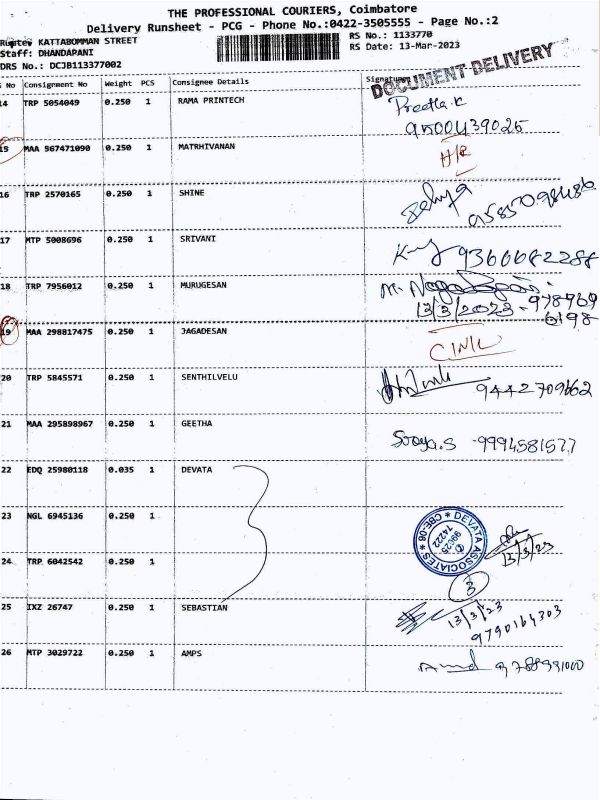 THE PROFESSIONAL COURIERS, Coimbatore
Delivery Runsheet - PCG - Phone No.:0422-3505555 - Page No.:2
Route: KATTABOMMAN STREET
RS No.: 1133770
Staff: DHANDAPANI
RS Date: 13-Mar-2023
DRS No.: DCJB113377002
DOCUMENT DELIVERY
S No Consignment No Weight PCS Consignee Details Signature
14 TRP 5054049 0.250 1 RAMA PRINTECH Preetha.K
9500439025
15 MAA 567471090 0.250 1 MATRHIVANAN
16 TRP 2570165 0.250 1 SHINE
17 MTP 5008696 0.250 1 SRIVANI 9360682288
18 TRP 7956012 0.250 1 MURUGESAN M.
13/3/2023 - 978969
6198
19 MAA 298817475 0.250 1 JAGADESAN
20 TRP 5845571 0.250 1 SENTHILVELU 9442709662
21 MAA 295898967 0.250 1 GEETHA Sorya.S - 9994581577
22 EDQ 25980118 0.035 1 DEVATA
23 NGL 6945136 0.250 1
DEVATA ASSOCIATES * CBE-06 *
99425
14222
13/3/23
24 TRP 6042542 0.250 1
3
25 IXZ 26747 0.250 1 SEBASTIAN
13/3/23
9790164303
26 MTP 3029722 0.250 1 AMPS